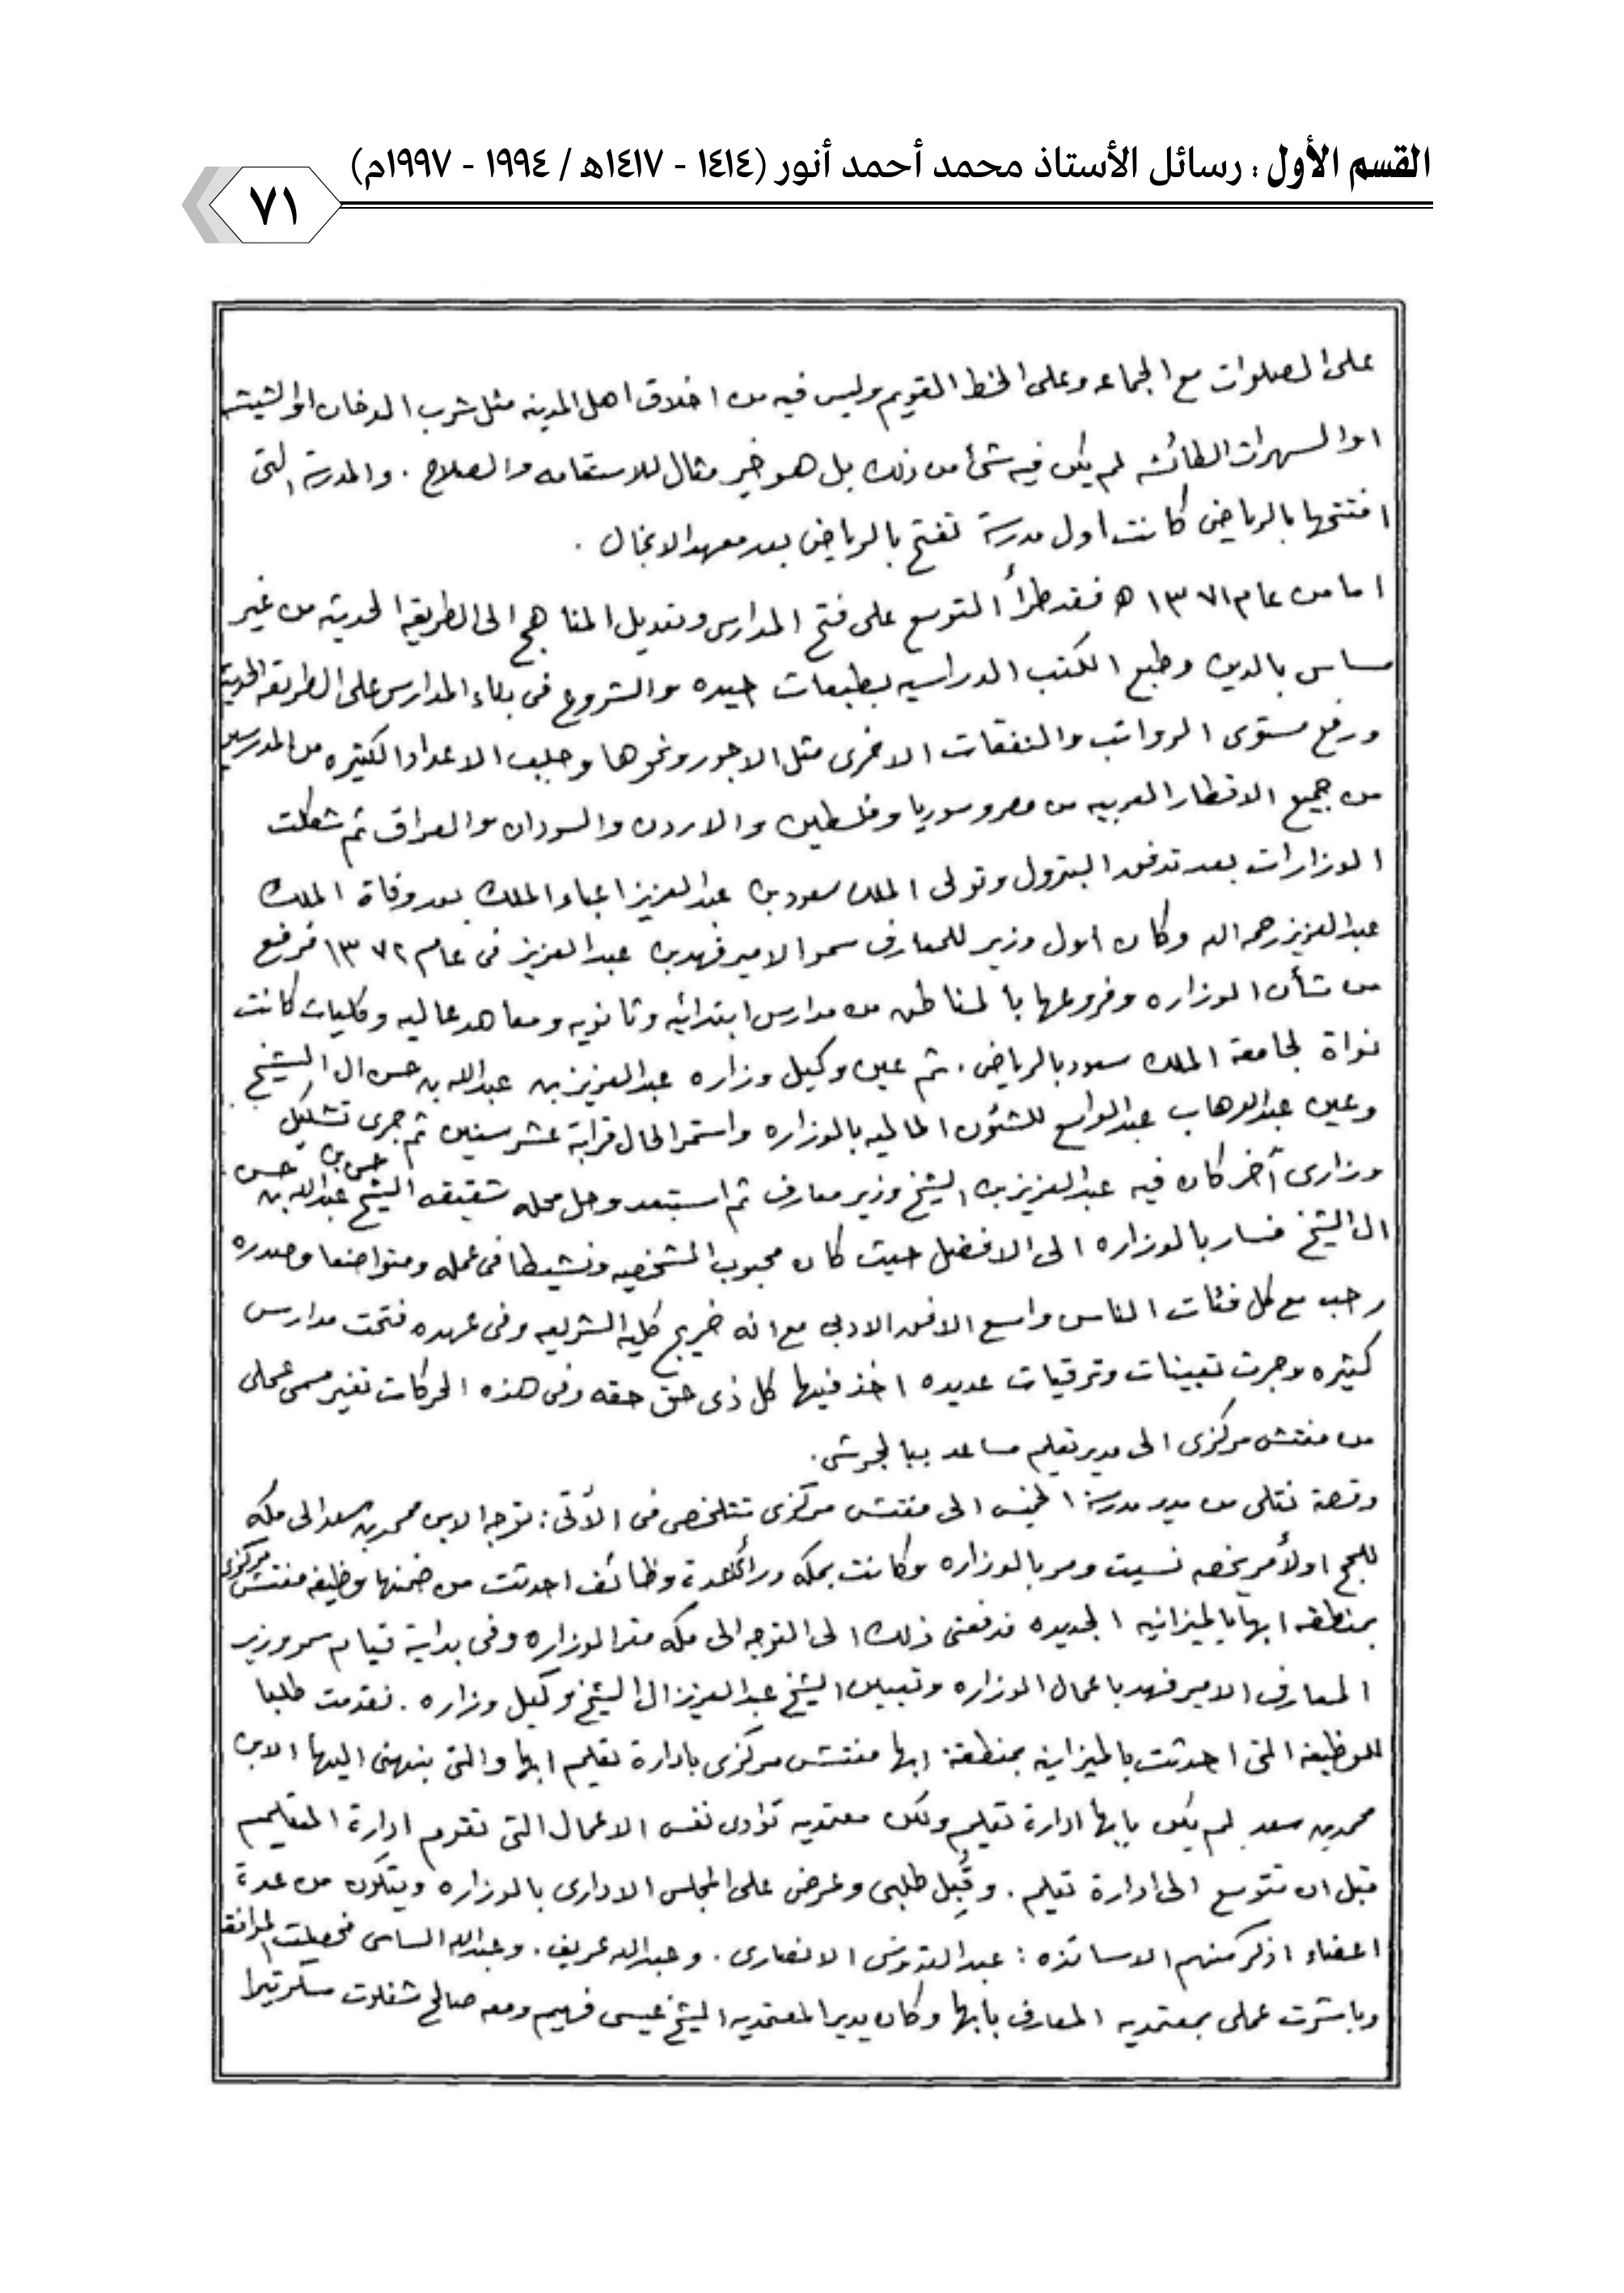 القسم الأول : رسائل الأستاذ محمد أحمد أنور (١٤١٤ - ١٤١٧هـ / ١٩٩٤ - ١٩٩٧م)
٧١
على الصلوات مع الجماعه وعلى الخط القويم وليس فيه من اخلاق اهل المدينه مثل شرب الدخان او الشيشه
او السهرات الطائشه لم يكن فيه شئ من ذلك بل هو خير مثال للاستقامه والصلاح . والمدرسة التى
افتتحها بالرياض كانت اول مدرسة تفتح بالرياض بعد معهد الانجال .
اما من عام ١٣٧١ هـ فقد طرأ التوسع على فتح المدارس وتعديل المناهج الى الطريقه الحديثه من غير
مساس بالدين وطبع الكتب الدراسيه بطبعات جيده والشروع فى بناء المدارس على الطريقه الحديثه
ورفع مستوى الرواتب والنفقات الاخرى مثل الاجور ونحوها وجلب الاعداد الكثيره من المدرسين
من جميع الاقطار العربيه من مصر وسوريا وفلسطين والاردن والسودان والعراق ثم شكلت
الوزارات بعد تدفق البترول وتولى الملك سعود بن عبدالعزيز اعباء الملك بعد وفاة الملك
عبدالعزيز رحمه الله وكان اول وزير للمعارف سمو الامير فهد بن عبدالعزيز فى عام ١٣٧٢ فرفع
من شأن الوزاره وفروعها بالمناطق من مدارس ابتدائيه وثانويه ومعاهد عاليه وكليات كانت
نواة لجامعة الملك سعود بالرياض . ثم عين وكيل وزاره عبدالعزيز بن عبدالله بن حسن ال الشيخ .
وعين عبدالوهاب عبدالواسع للشئون الماليه بالوزاره واستمر الحال قرابة عشر سنين ثم جرى تشكيل
وزارى آخر كان فيه عبدالعزيز بن الشيخ وزير معارف ثم استبعد وحل محله شقيقه الشيخ حسن بن عبدالله بن حسن
ال الشيخ فسار بالوزاره الى الافضل حيث كان محبوب الشخصيه ونشيطا فى عمله ومتواضعا وصدره
رحب مع كل فئات الناس واسع الافق الادبى مع انه خريج كلية الشريعه وفى عهده فتحت مدارس
كثيره وجرت تعيينات وترقيات عديده اخذ فيها كل ذى حق حقه وفى هذه الحركات تغير مسمى عملى
من مفتش مركزى الى مدير تعليم مساعد ببالجرشى .
وقصة نقلى من مدير مدرسة الخميس الى مفتش مركزى تتلخص فى الأتى : توجه الابن محمد بن سعد الى مكه
للحج او لأمر يخصه نسيت ومر بالوزاره وكانت بمكه ورأى عدة وظائف احدثت من ضمنها وظيفه مفتش مركزى
بمنطقه ابها بالميزانيه الجديده فدفعنى ذلك الى التوجه الى مكه مقر الوزاره وفى بداية قيام سمو وزير
المعارف الامير فهد باعمال الوزاره وتعيين الشيخ عبدالعزيز ال الشيخ وكيل وزاره . فقدمت طلبا
للوظيفه التى احدثت بالميزانيه بمنطقة ابها مفتش مركزى بادارة تعليم ابها والتى ينبهنى اليها الابن
محمد بن سعد لم يكن بابها ادارة تعليم ولكن معتمديه تؤدى نفس الاعمال التى تقوم ادارة التعليم
قبل ان تتوسع الى ادارة تعليم . وقُبِل طلبى وعرض على المجلس الادارى بالوزاره ويتكون من عدة
اعضاء اذكر منهم الاساتذه : عبدالقدوس الانصارى . وعبدالله عريف . وعبدالله الساسى فحصلت الموافقه
وباشرت عملى بمعتمديه المعارف بابها وكان يدير المعتمديه الشيخ عيسى فهيم ومعه صالح شغلوت سكرتيرا